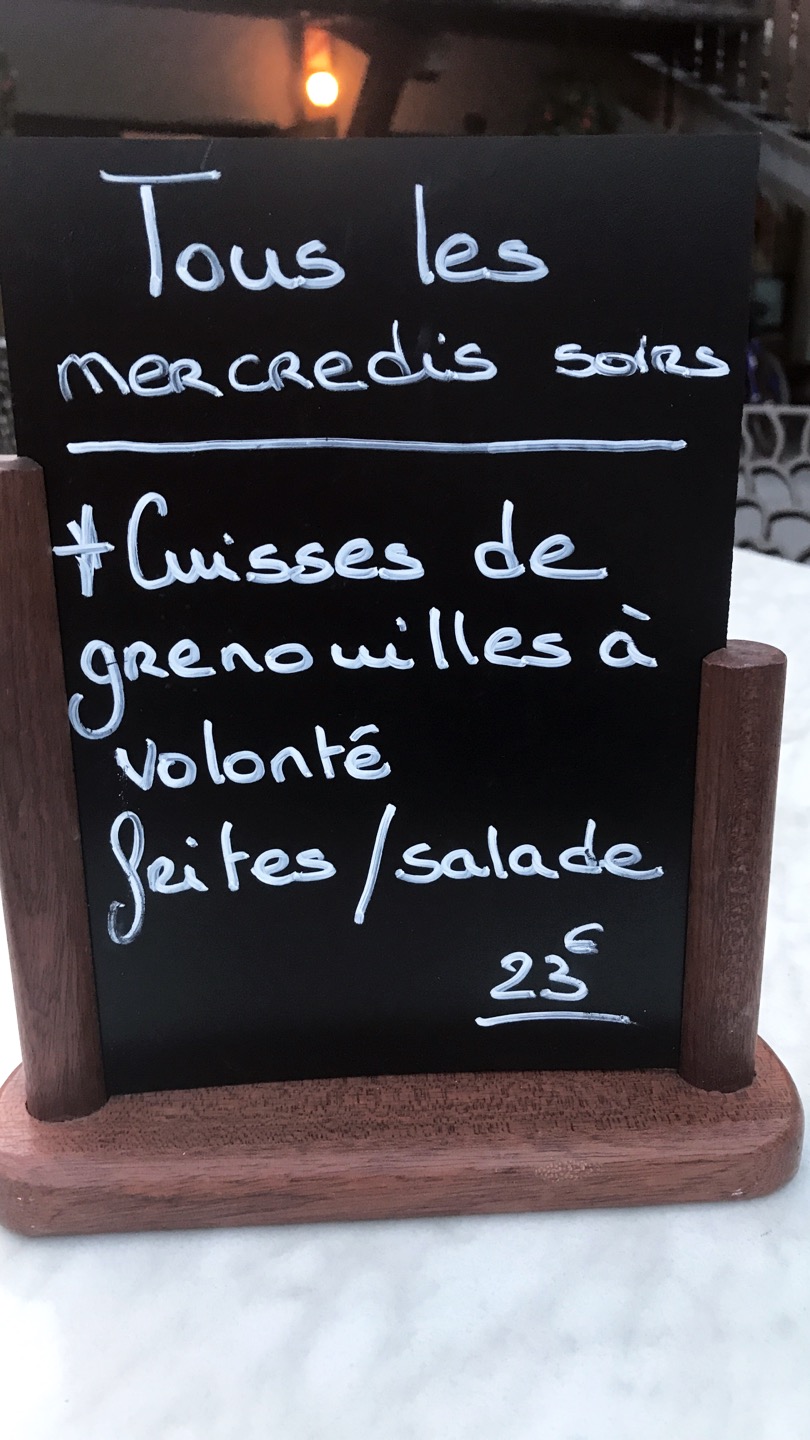 Tous les
mercredis soirs
* Cuisses de
grenouilles à
volonté
frites/salade
23€